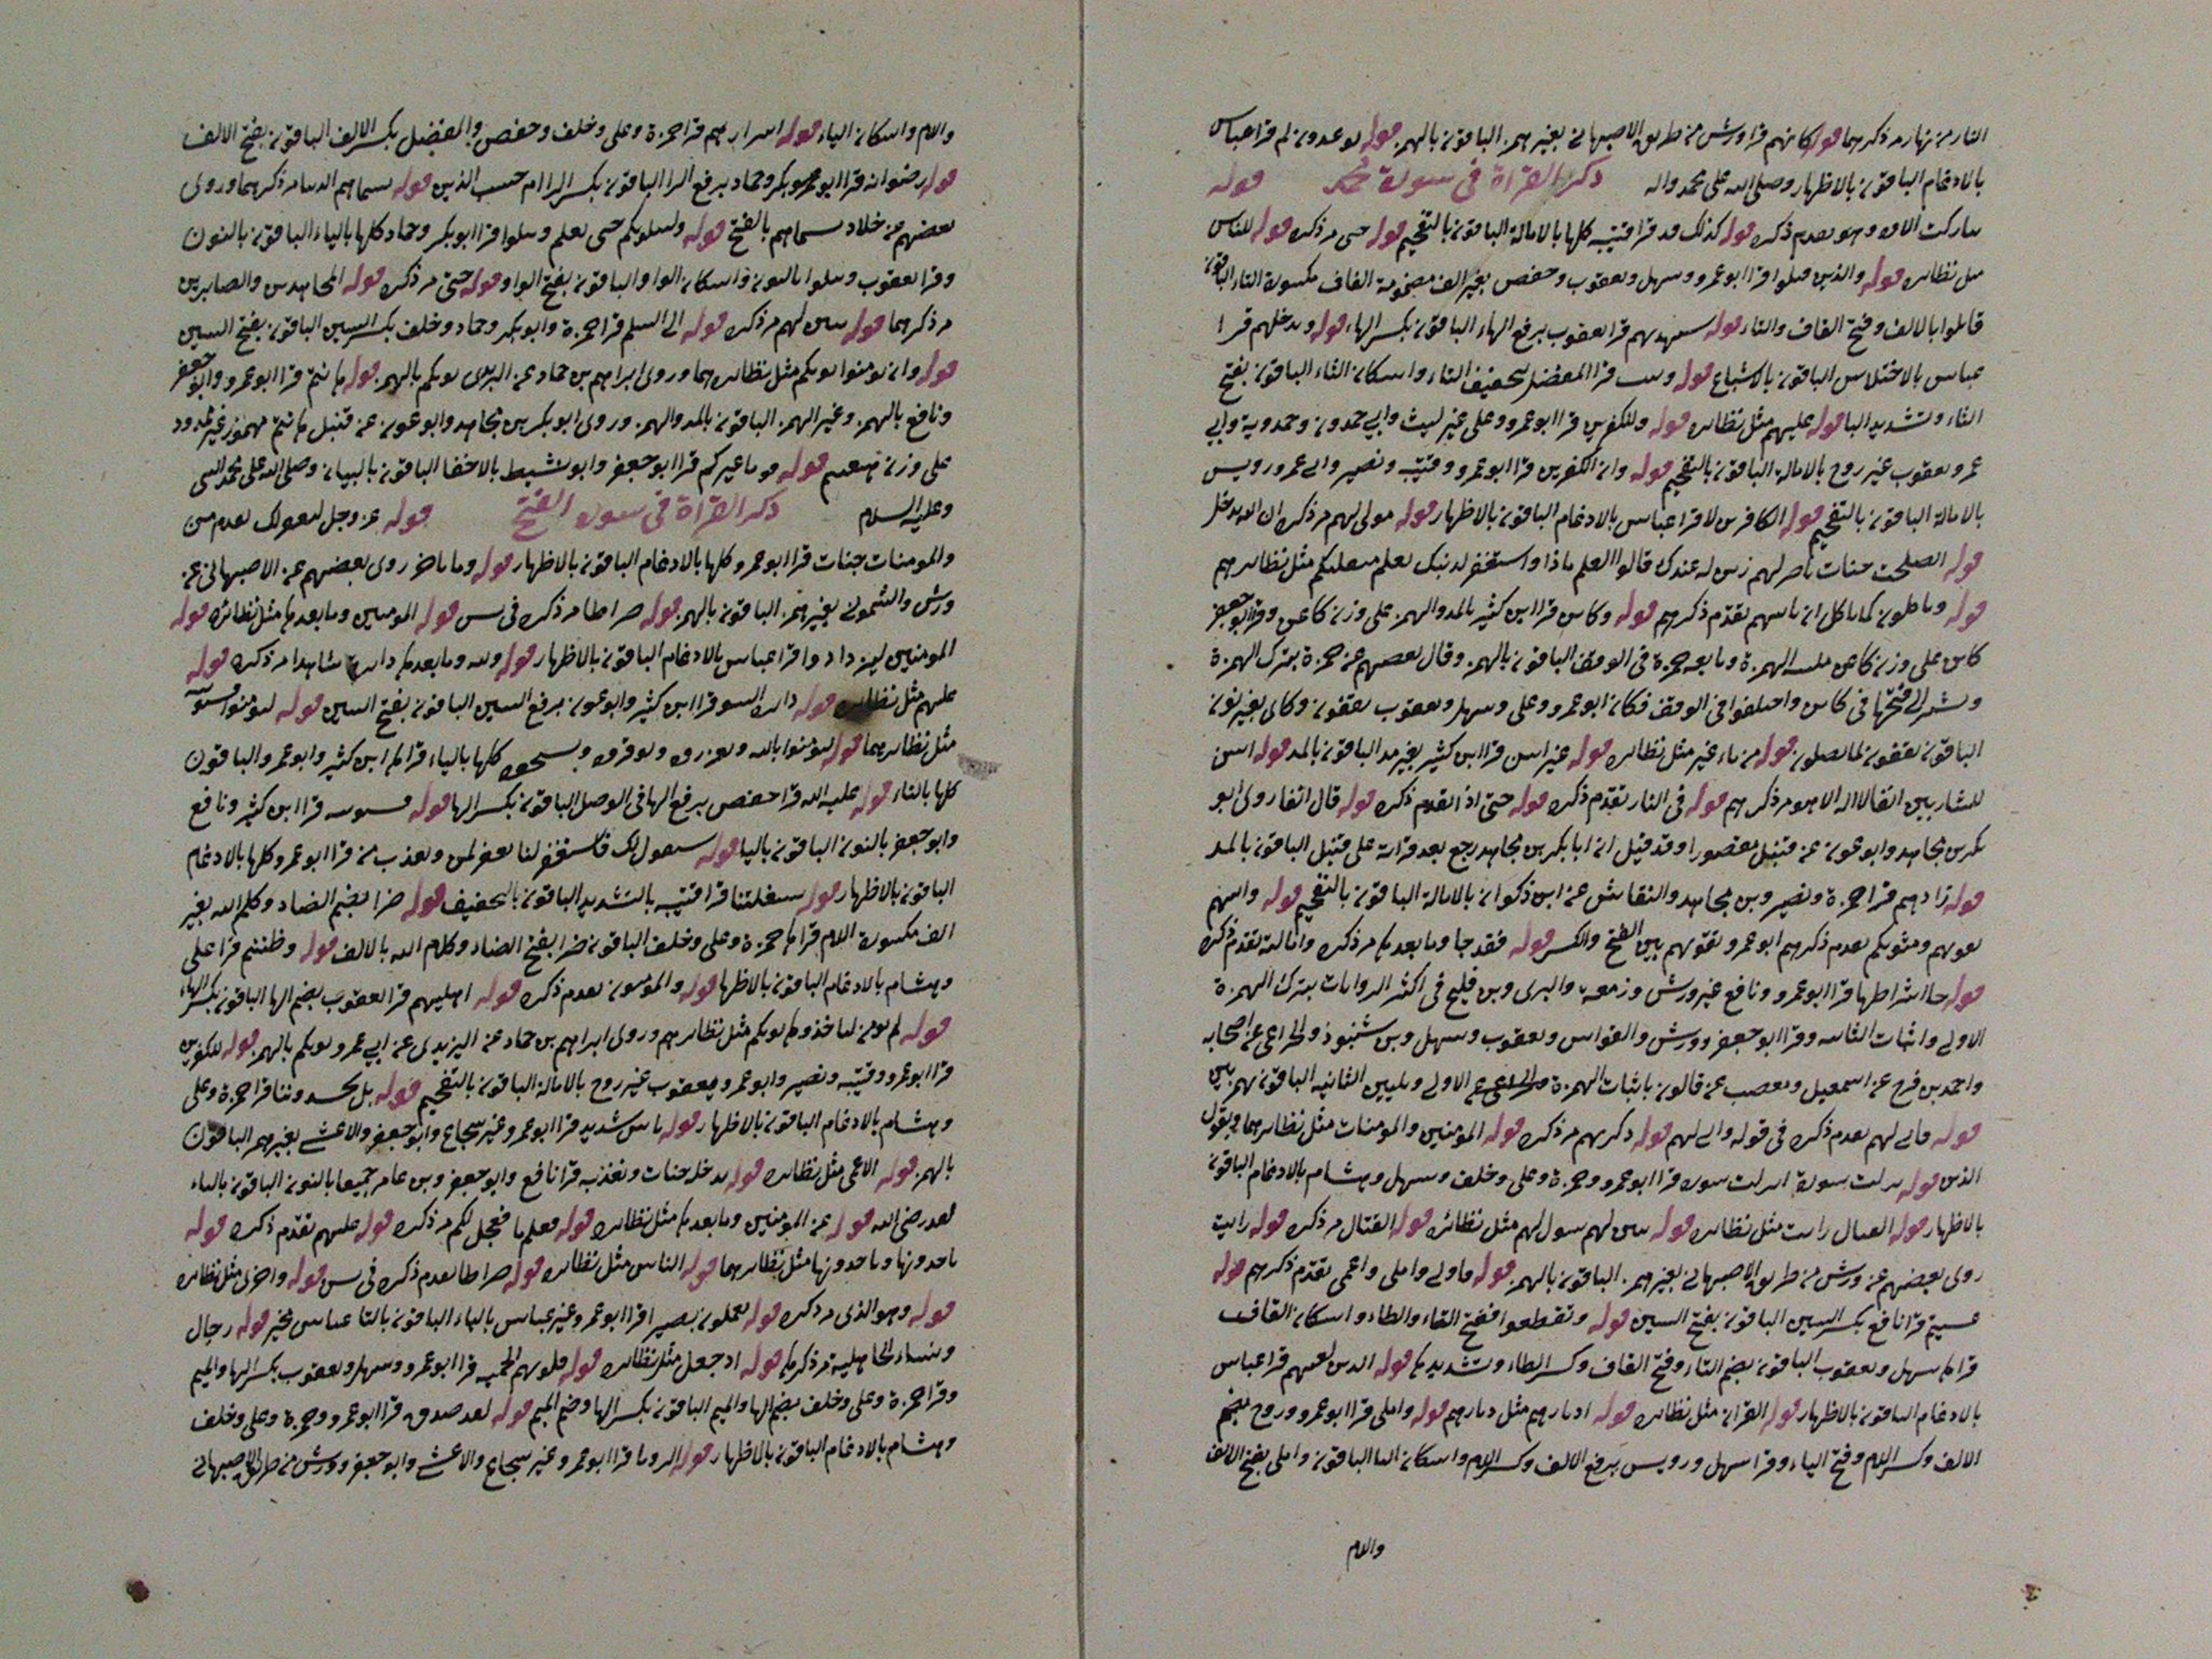 النار من نهار مر ذكرهما قوله كانهم قرا ورش من طريق الاصبهاني بغير همز الباقون بالهمز قوله يوعدون لم قرا عباس
بالادغام الباقون بالاظهار وصلى الله على محمد واله ذكر القراة في سورة محمد قوله
وهو تقدم ذكره قوله كذلك قد قرا قتيبه كلها بالامالة الباقون بالتفخيم قوله حتى مر ذكره قوله للناس
مثل نظائره قوله والذين قتلوا قرا ابو عمرو وسهل ويعقوب وحفص بغير الف مضمومة القاف مكسورة التاء الباقون
قاتلوا بالالف وفتح القاف والتاء قوله سيهديهم قرا يعقوب برفع الهاء الباقون بكسر الهاء قوله ويدخلهم قرا
عباس بالاختلاس الباقون بالاشباع قوله قرا المفضل بتخفيف التاء واسكان الثاء الباقون بفتح
الثاء وتشديد البا قوله عليهم مثل نظائره قوله وللكفرين قرا ابو عمرو وعلى غير ليث وابي حمدون وحمدوية وابي
عمر ويعقوب غير روح بالامالة الباقون بالتفخيم قوله وان الكفرين قرا ابو عمرو وقتيبه ونصير وابي عمر ورويس
بالامالة الباقون بالتفخيم قوله الكافرين لا قرا عباس بالادغام الباقون بالاظهار قوله مولى لهم مر ذكره ان الله يدخل
قوله الصلحت جنات ناصر لهم زين له عندك قالوا العلم ماذا واستغفر لذنبك يعلم متقلبكم مثل نظائرهم
قوله وياكلون كما تاكل ان تاتيهم تقدم ذكرهم قوله وكائن قرا ابن كثير بالمد والهمز على وزن كاعن وقرا ابو جعفر
كاين على وزن كاعن ملينة الهمزة وتابعه حمزة في الوقف الباقون بالهمز وقال بعضهم عن حمزة بترك الهمزة
ويشير الى فتحها في كاين واختلفوا في الوقف فكان ابو عمرو وعلى وسهل ويعقوب يقفون وكاى بغير نون
الباقون يقفون كما يصلون قوله من ماء غير مثل نظائره قوله غير اسن قرا ابن كثير بغير مد الباقون بالمد قوله اسن
للشاربين انفا لا اله الا هو مر ذكرهم قوله في النار تقدم ذكره قوله حتى اذا تقدم ذكره قوله قال انفا روى ابو
بكر بن مجاهد وابو عون عن قنبل مقصورا وقد قيل ان ابا بكر بن مجاهد رجع بعد قراته على قنبل الباقون بالمد
قوله زادهم قرا حمزة ونصير وبن مجاهد والنقاش عن ابن ذكوان بالامالة الباقون بالتفخيم قوله واتيهم
تقويهم ومثويكم تقدم ذكرهم ابو عمرو تقويهم بين الفتح والكسر قوله فقد جا وما بعدها مر ذكره وامالته تقدم ذكره
قوله جا اشراطها قرا ابو عمرو ونافع غير ورش وزمعه والبزى وبن فليح في اكثر الروايات بترك الهمزة
الاولى واثبات الثانيه وقرا ابو جعفر وورش والقواس ويعقوب وسهل وبن شنبوذ والخزاعي عن اصحابه
واحمد بن فرح عن اسمعيل ومصعب عن قالون باثبات الهمزة الاولى وتليين الثانيه الباقون بهمزتين
قوله فاني لهم تقدم ذكره في قوله واني لهم قوله ذكريهم مر ذكره قوله المومنين والمومنات مثل نظائرهما ويقول
الذين قوله نزلت سورة انزلت سورة قرا ابو عمرو وحمزة وعلى وخلف وسهل وهشام بالادغام الباقون
بالاظهار قوله القتال رايت مثل نظائره قوله تبين لهم سول لهم مثل نظائره قوله القتال مر ذكره قوله رايت
روى بعضهم عن ورش من طريق الاصبهاني بغير همز الباقون بالهمز قوله فاولى واملى واعمى تقدم ذكرهم قوله
عسيتم قرا نافع بكسر السين الباقون بفتح السين قوله وتقطعوا ففتح التاء والطاء واسكان القاف
قراها سهل ويعقوب الباقون بضم التاء وفتح القاف وكسر الطاء وتشديدها قوله الذين لعنهم قرا عباس
بالادغام الباقون بالاظهار قوله القران مثل نظائره قوله ادبارهم مثل ديارهم قوله واملى قرا ابو عمرو وروح بضم
الالف وكسر اللام وفتح الياء وقرا سهل ورويس برفع الالف وكسر اللام واسكان اليا الباقون واملى بفتح الالف
واللام
واللام واسكان الياء قوله اسرارهم قرا حمزة وعلى وخلف وحفص والمفضل بكسر الالف الباقون بفتح الالف
قوله رضوانه قرا ابو بكر وحماد برفع الرا الباقون بكسر الرا ام حسب الذين قوله بسيماهم مر ذكرهما وروى
بعضهم عن خلاد بسيماهم بالفتح قوله ولنبلونكم حتى نعلم ونبلوا قرا ابو بكر وحماد كلها بالياء الباقون بالنون
وقرا يعقوب ونبلوا بالنون واسكان الواو الباقون بفتح الواو قوله حتى مر ذكره قوله المجاهدين والصابرين
مر ذكرهما قوله تبين لهم مر ذكره قوله الى السلم قرا حمزة وابو بكر وحماد وخلف بكسر السين الباقون بفتح السين
قوله وان تومنوا يوتكم مثل نظائرهما وروى ابراهيم بن حماد عن اليزيدى يوتكم بالهمز قوله هانتم قرا ابو عمرو وابو جعفر
ونافع بالهمز وغير الهمز الباقون بالمد والهمز وروى ابو بكر بن مجاهد وابو عون عن قنبل هانتم مهموز غير ممدود
على وزن قوله قوما غيركم قرا ابو جعفر وابو نشيط بالاخفا الباقون بالبيان وصلى الله على محمد النبي
وعليه السلام ذكر القراة في سورة الفتح قوله عز وجل ليغفر لك تقدم من
والمومنات جنات قرا ابو عمرو كلها بالادغام الباقون بالاظهار قوله وما تاخر روى بعضهم عن الاصبهاني عن
ورش والشموني بغير همز الباقون بالهمز قوله صراطا مر ذكره في يس قوله المومنين وما بعدها مثل نظائره قوله
المومنين ليزدادوا قرا عباس بالادغام الباقون بالاظهار قوله ولله وما بعدها شاهدا مر ذكره قوله
عليهم مثل نظائره قوله دائرة السو قرا ابن كثير وابو عمرو برفع السين الباقون بفتح السين قوله لتومنوا
مثل نظائرهما قوله لتومنوا بالله وتعزروه وتوقروه وتسبحوه كلها بالياء قراها ابن كثير وابو عمرو الباقون
كلها بالتاء قوله عليه الله قرا حفص برفع الها في الوصل الباقون بكسر الها قوله فسنوتيه قرا ابن كثير ونافع
وابو جعفر بالنون الباقون باليا قوله سيقول لك فاستغفر لنا يغفر لمن ويعذب من قرا ابو عمرو كلها بالادغام
الباقون بالاظهار قوله شغلتنا قرا قتيبه بالتشديد الباقون بالتخفيف قوله ضرا بضم الضاد وكلم الله بغير
الف مكسورة اللام قراها حمزة وعلى وخلف الباقون ضرا بفتح الضاد وكلام الله بالالف قوله وظننتم قرا على
وهشام بالادغام الباقون بالاظهار قوله والمومنون تقدم ذكره قوله اهليهم قرا يعقوب بضم الها الباقون بكسر الهاء
قوله لم يومن لتاخذوها يوتكم مثل نظائرهم وروى ابراهيم بن حماد عن اليزيدى عن ابي عمرو يوتكم بالهمز قوله للكفرين
قرا ابو عمرو وقتيبه ونصير وابو عمر ويعقوب غير روح بالامالة الباقون بالتفخيم قوله بل تحسدوننا قرا حمزة وعلى
وهشام بالادغام الباقون بالاظهار قوله باس شديد قرا ابو عمرو غير شجاع وابو جعفر والاعشى بغير همز الباقون
بالهمز قوله الاعمى مثل نظائره قوله يدخله جنات ويعذبه قرا نافع وابو جعفر وبن عامر جميعا بالنون الباقون بالياء
لقد رضى الله قوله عن المومنين وما بعدها مثل نظائره قوله فعلم ما فعجل لكم مر ذكره قوله عليهم تقدم ذكره قوله
ياخذونها وياخذونها مثل نظائرهما قوله الناس مثل نظائره قوله صراطا تقدم ذكره في يس قوله واخرى مثل نظائره
قوله وهو الذى مر ذكره قوله تعملون بصيرا قرا ابو عمرو غير عباس بالياء الباقون بالتا عباس مخير قوله رجال
ونساء الجاهلية مر ذكرها قوله اذ جعل مثل نظائره قوله قلوبهم الحميه قرا ابو عمرو وسهل ويعقوب بكسر الها والميم
وقرا حمزة وعلى وخلف بضم الها والميم الباقون بكسر الها وضم الميم قوله لقد صدق قرا ابو عمرو وحمزة وعلى وخلف
وهشام بالادغام الباقون بالاظهار قوله الرويا قرا ابو عمرو غير شجاع والاعشى وابو جعفر وورش من طريق الاصبهاني